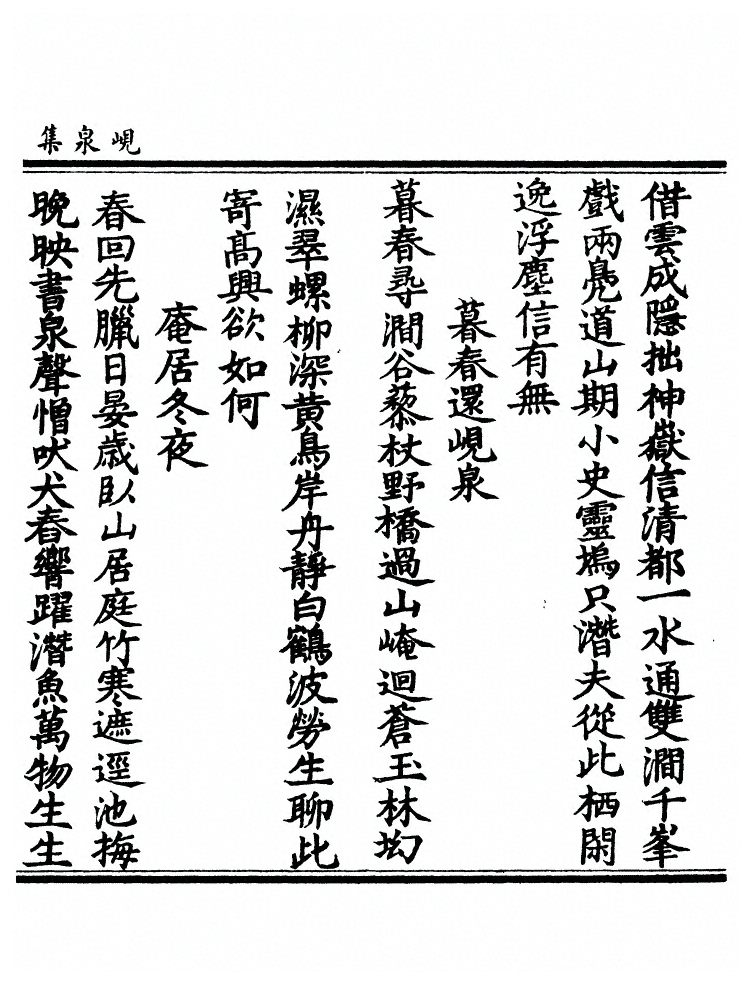 峴泉集
偕雲成隱拙神嶽信清都一水通雙澗千峯
戲兩鳧道山期小史靈塢只潛夫從此栖閑
逸浮塵信有無
暮春還峴泉
暮春尋澗谷藜杖野橋過山崦迴蒼玉林坳
濕翠螺柳深黄鳥岸丹靜白鶴波勞生聊此
寄高興欲如何
庵居冬夜
春回先臘日晏歲臥山居庭竹寒遮逕池梅
晚映書泉聲憎吠犬舂響躍潛魚萬物生生